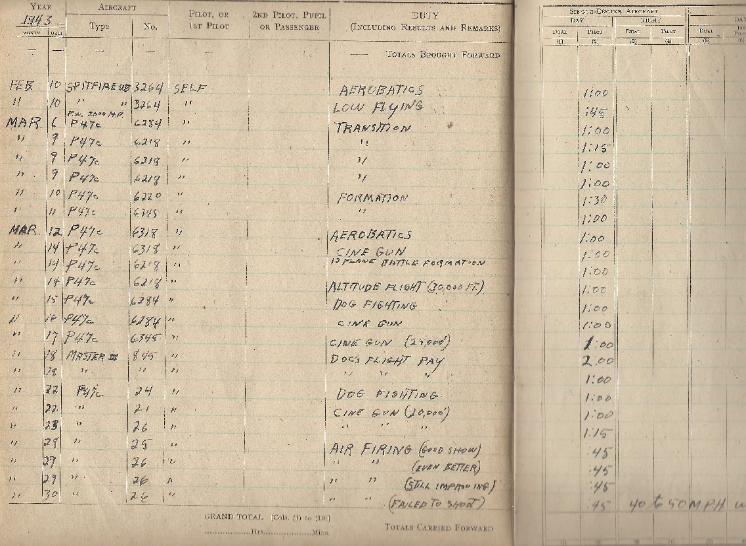 YEAR AIRCRAFT PILOT, OR 2ND PILOT, PUPIL DUTY
1943 Type No. 1ST PILOT OR PASSENGER (INCLUDING RESULTS AND REMARKS)
SINGLE-ENGINE AIRCRAFT
DAY NIGHT
DUAL PILOT DUAL PILOT DUAL
(1) (2) (3) (4) (5)
TOTALS BROUGHT FORWARD
FEB 10 SPITFIRE VB 3264 SELF AEROBATICS 1:00
" 10 " " 3264 " LOW FLYING :45
MAR 6 P47C 6284 " TRANSITION 1:00
" 9 P47C 6218 " " 1:15
" 9 P47C 6218 " " 1:00
" 9 P47C 6218 " " 1:00
" 10 P47C 6220 " FORMATION 1:30
" 11 P47C 6345 " " 1:00
MAR 12 P47C 6318 " AEROBATICS 1:00
" 14 P47C 6318 " CINE GUN 1:00
" 14 P47C 6218 " 12 PLANE BATTLE FORMATION 1:00
" 14 P47C 6218 " ALTITUDE FLIGHT (30,000 FT) 1:00
" 15 P47C 6284 " DOG FIGHTING 1:00
" 16 P47C 6284 " CINE GUN 1:00
" 17 P47C 6345 " CINE GUN (25,000) 1:00
" 18 MASTER III 845 " DOCS FLIGHT PAY 2:00
" 18 " " " " " " 1:00
" 22 P47C 24 " DOG FIGHTING 1:00
" 22 " 21 " CINE GUN (20,000) 1:00
" 28 " 26 " " " " 1:15
" 29 " 25 " AIR FIRING (GOOD SHOW) :45
" 29 " 26 " " " (EVEN BETTER) :45
" 29 " 26 " " " (STILL IMPROVING) :45
" 30 " 26 " " " (FAILED TO SHOOT) :45 40 to 50 MPH
GRAND TOTAL [Cols. (1) to (10)]
Hrs. Mins.
TOTALS CARRIED FORWARD